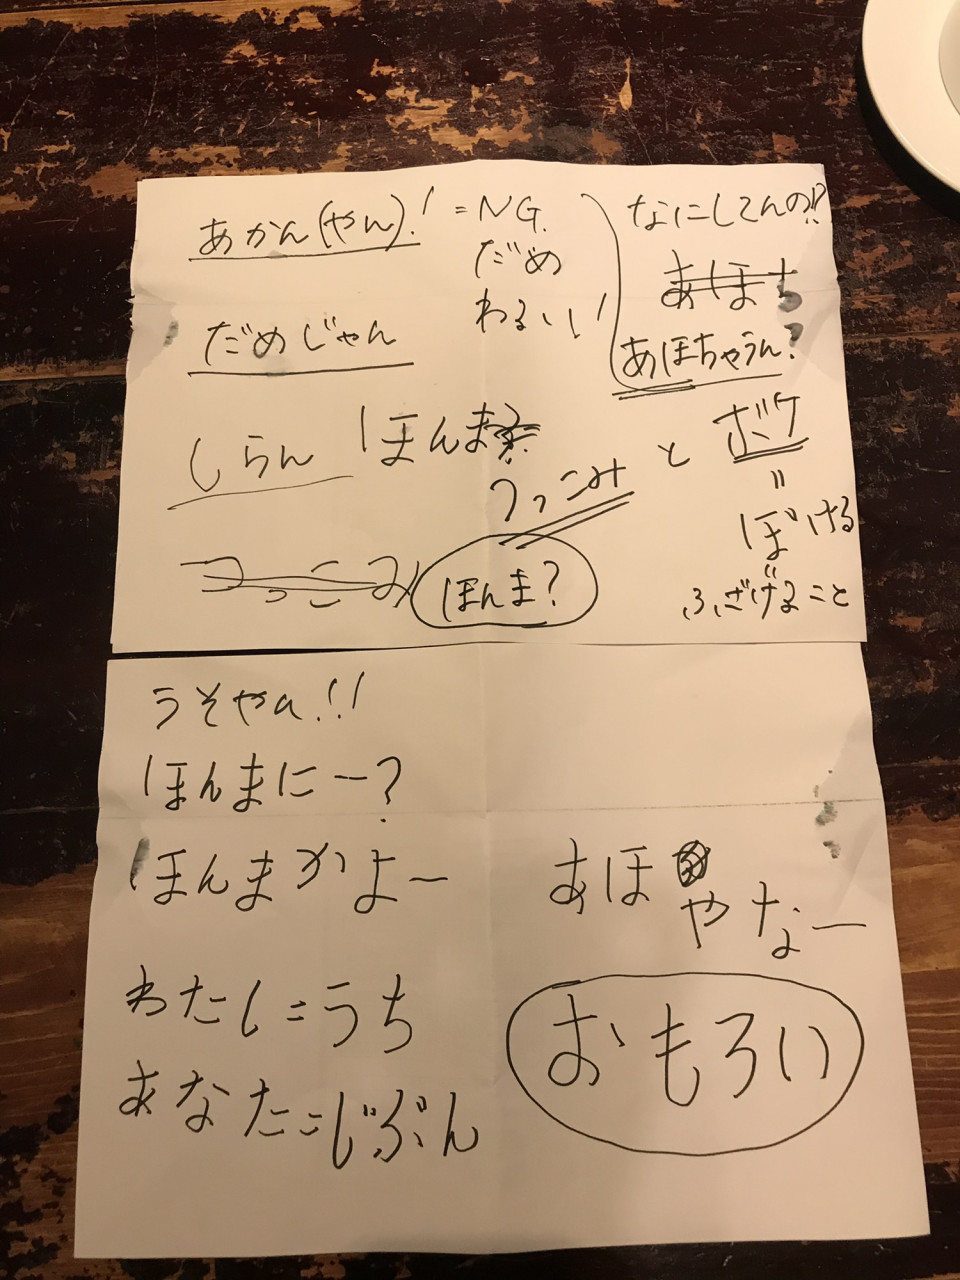 あかん(やん)! = NG.
だめ
わるい!
だめじゃん
しらん ほんま
つっこみ と ボケ
〃
ぼける
〃
ふざけること
つっこみ
ほんま?
なにしてんの!?
あほち
あほちゃうん?
うそやん!!
ほんまにー?
ほんまかよ〜
わたし=うち
あなた=じぶん
あほ
やなー
おもろい